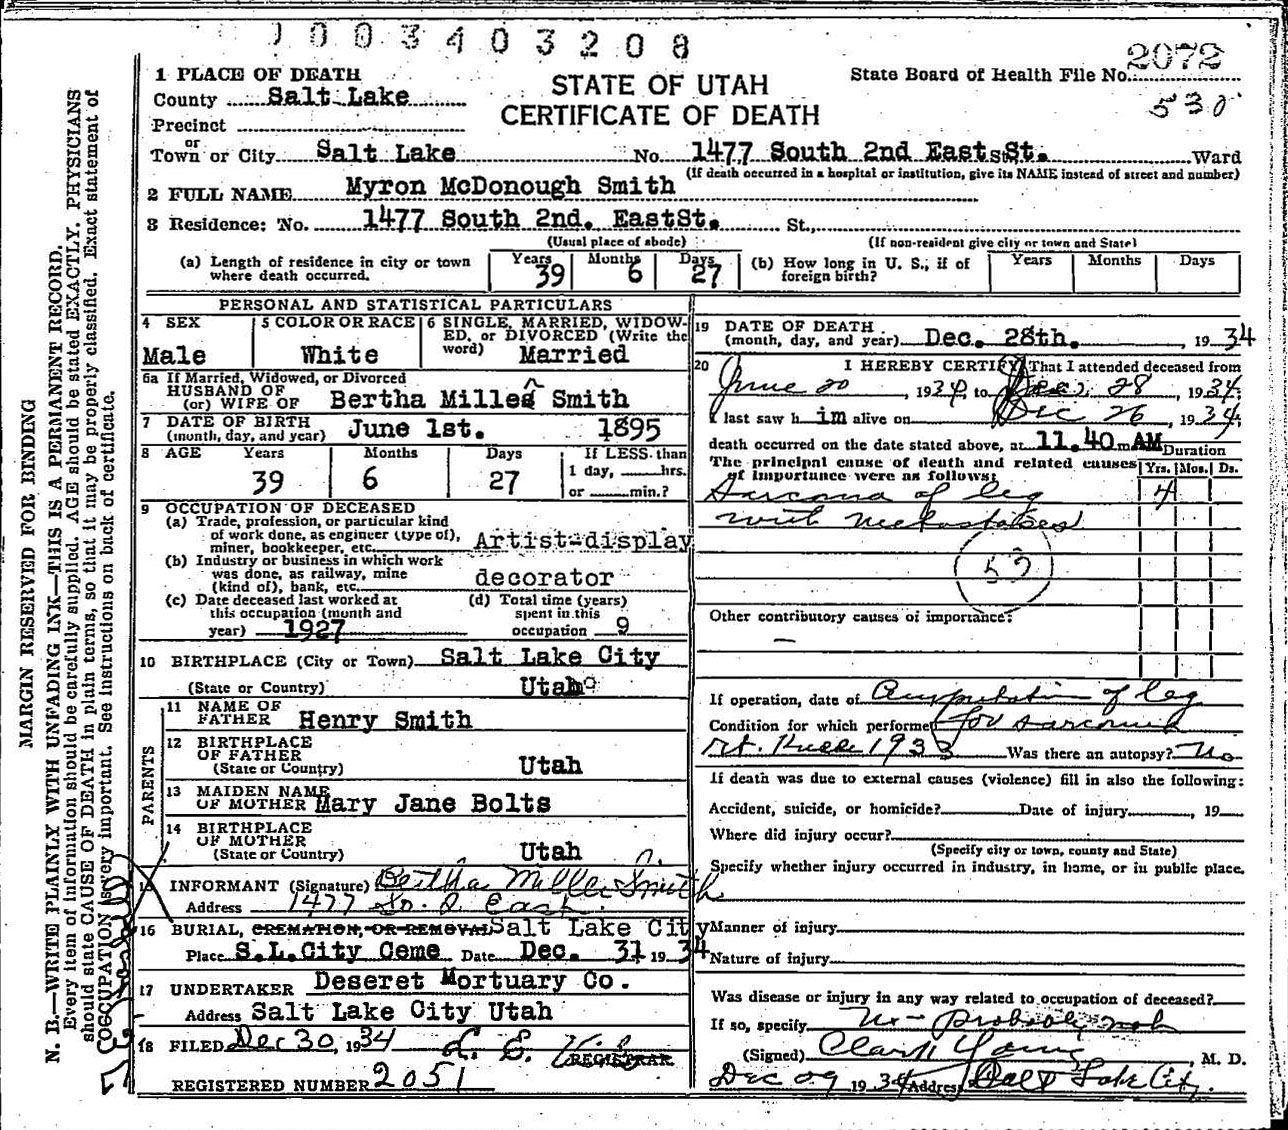 1003403208
2072
530
1 PLACE OF DEATH
STATE OF UTAH
CERTIFICATE OF DEATH
State Board of Health File No.
County Salt Lake
Precinct
or
Town or City Salt Lake No. 1477 South 2nd East St. St. Ward
(If death occurred in a hospital or institution, give its NAME instead of street and number)
2 FULL NAME Myron McDonough Smith
3 Residence: No. 1477 South 2nd. EastSt. St.,
(Usual place of abode) (If non-resident give city or town and State)
(a) Length of residence in city or town where death occurred. Years 39 Months 6 Days 27
(b) How long in U. S., if of foreign birth? Years Months Days
PERSONAL AND STATISTICAL PARTICULARS
4 SEX Male
5 COLOR OR RACE White
6 SINGLE, MARRIED, WIDOWED, or DIVORCED (Write the word) Married
6a If Married, Widowed, or Divorced
HUSBAND OF
(or) WIFE OF Bertha Mille Smith
7 DATE OF BIRTH
(month, day, and year) June 1st. 1895
8 AGE Years 39 Months 6 Days 27 If LESS than 1 day, hrs. or min.?
9 OCCUPATION OF DECEASED
(a) Trade, profession, or particular kind of work done, as engineer (type of), miner, bookkeeper, etc. Artist-display
(b) Industry or business in which work was done, as railway, mine (kind of), bank, etc. decorator
(c) Date deceased last worked at this occupation (month and year) 1927
(d) Total time (years) spent in this occupation 9
10 BIRTHPLACE (City or Town) Salt Lake City
(State or Country) Utah
PARENTS
11 NAME OF FATHER Henry Smith
12 BIRTHPLACE OF FATHER
(State or Country) Utah
13 MAIDEN NAME OF MOTHER Mary Jane Bolts
14 BIRTHPLACE OF MOTHER
(State or Country) Utah
15 INFORMANT (Signature) Bertha Miller Smith
Address 1477 So. 2 East.
16 BURIAL, CREMATION, OR REMOVAL Salt Lake City
Place S.L.City Ceme Date Dec. 31 1934
17 UNDERTAKER Deseret Mortuary Co.
Address Salt Lake City Utah
18 FILED Dec 30, 1934
REGISTRAR
REGISTERED NUMBER 2051
19 DATE OF DEATH
(month, day, and year) Dec. 28th. , 1934
20 I HEREBY CERTIFY, That I attended deceased from
June 20, 1934, to Dec. 28, 1934,
I last saw him alive on Dec 26, 1934,
death occurred on the date stated above, at 11.40 m. AM
Duration
The principal cause of death and related causes of importance were as follows: Yrs. Mos. Ds.
Sarcoma of leg 4
with
53
Other contributory causes of importance:
If operation, date of Amputation of leg
Condition for which performed for sarcoma
rt. Knee 1933 Was there an autopsy? No
If death was due to external causes (violence) fill in also the following:
Accident, suicide, or homicide? Date of injury , 19
Where did injury occur?
(Specify city or town, county and State)
Specify whether injury occurred in industry, in home, or in public place.
Manner of injury
Nature of injury
Was disease or injury in any way related to occupation of deceased?
If so, specify No - probably not
(Signed) Clark Young , M. D.
Dec 29 1934 Address Salt Lake City.
MARGIN RESERVED FOR BINDING
N. B.—WRITE PLAINLY WITH UNFADING INK—THIS IS A PERMANENT RECORD.
Every item of information should be carefully supplied. AGE should be stated EXACTLY. PHYSICIANS
should state CAUSE OF DEATH in plain terms, so that it may be properly classified. Exact statement of
OCCUPATION is very important. See instructions on back of certificate.